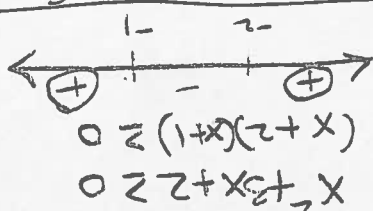 x²+3x+2 ≥ 0
(x+2)(x+1) ≥ 0
+ - +
-2 -1